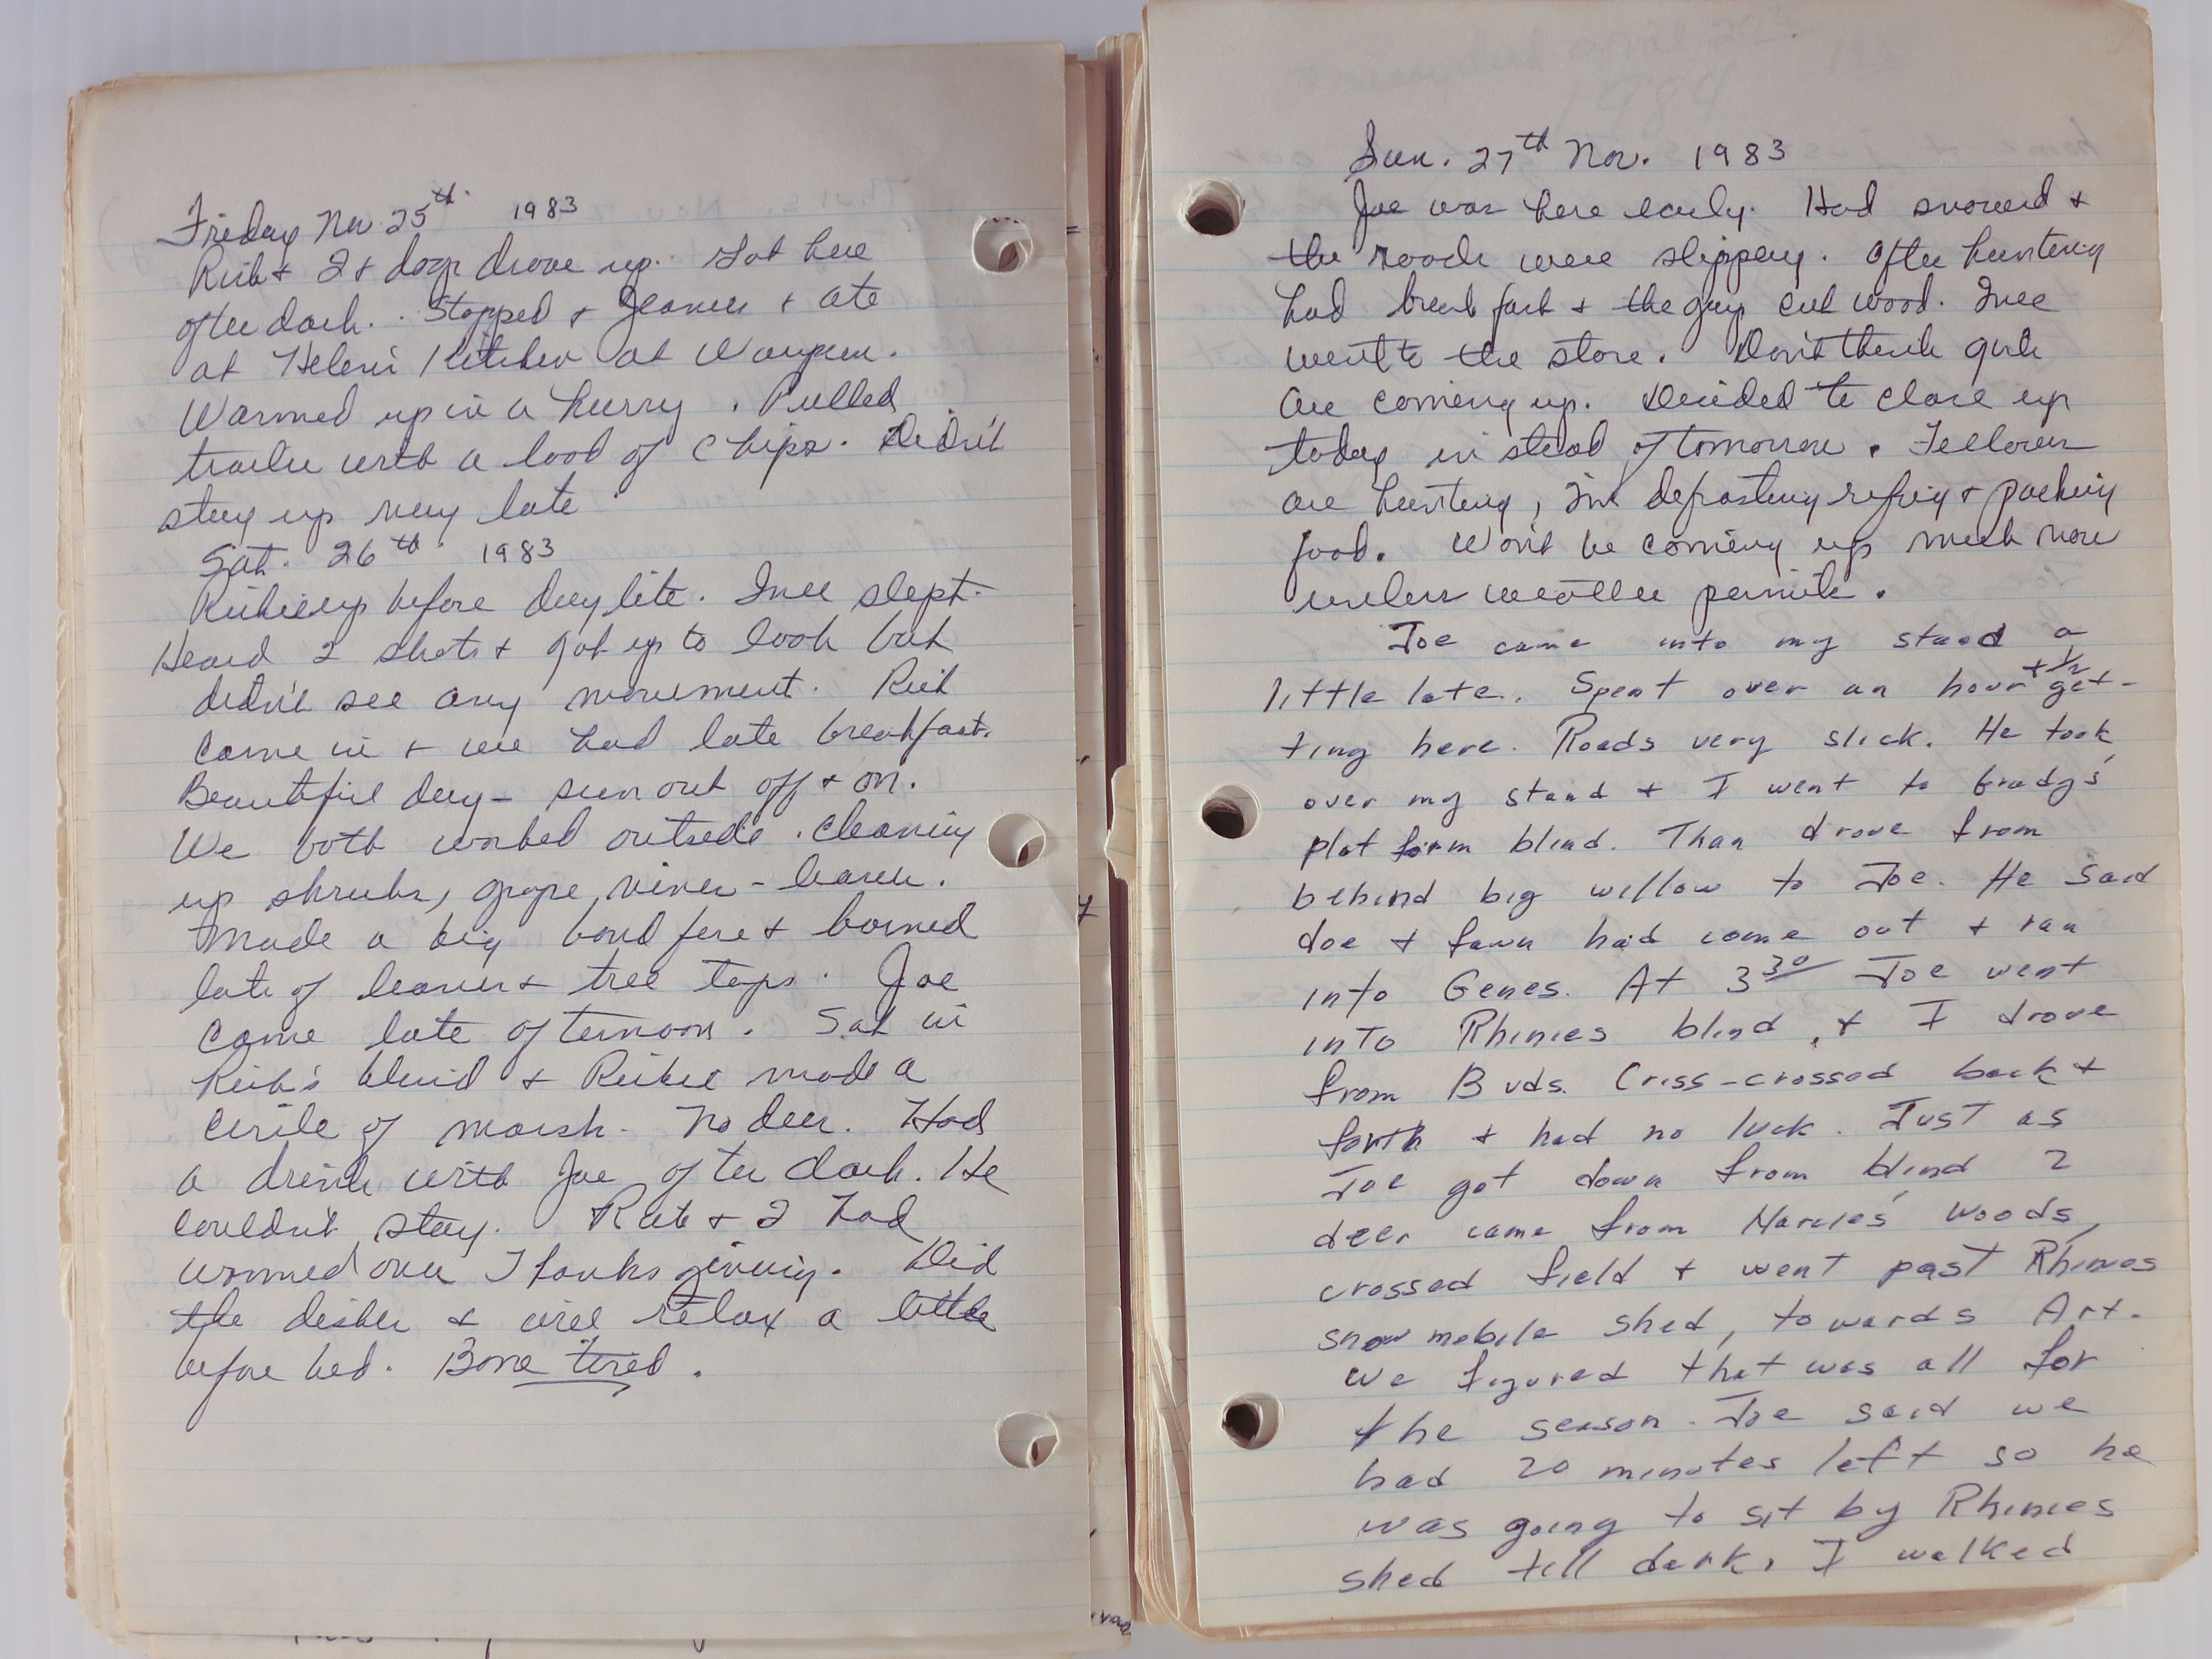 Friday Nov. 25th 1983
Rich & I & dogs drove up. Got here
after dark. Stopped & & ate
at Helen's Kitchen at
Warmed up in a hurry. Pulled
trailer with a load of chips. Didn't
stay up very late
Sat. 26th 1983
Richie up before daylite. Inee slept.
Heard 2 shots & got up to look but
didn't see any movement. Rich
came in & we had late breakfast.
Beautiful day - sun out off & on.
We both worked outside. Cleaning
up shrubs, grape vines - leaves.
Made a big bond fire & borned
lots of leaves & tree tops. Joe
came late afternoon. Sat in
Rich's blind & Richie made a
circle of marsh. No deer. Had
a drink with Joe after dark. He
couldn't stay. Rich & I had
warmed over Thanksgiving. Did
the dishes & will relax a little
before bed. Bone tired.
Sun. 27th Nov. 1983
Joe was here early. Had snowed &
the roads were slippery. After hunting
had breakfast & the guys cut wood. Inee
went to the store. Don't think girls
are coming up. Decided to close up
today in stead of tomorrow. Fellows
are hunting, I'm defrosting refrig & packing
food. Won't be coming up much now
unless weather permits.
Joe came into my stand a
little late. Spent over an hour + 1/2 get-
ting here. Roads very slick. He took
over my stand & I went to Grady's
plat form blind. Than drove from
behind big willow to Joe. He said
doe & fawn had come out & ran
into Genes. At 3 30 Joe went
into Rhinies blind, & I drove
from Buds. Criss-crossed back &
forth & had no luck. Just as
Joe got down from blind 2
deer came from Marcies' woods,
crossed field & went past Rhinies
snow mobile shed, towards Art.
We figured that was all for
the season. Joe said we
had 20 minutes left so he
was going to sit by Rhinies
shed till dark. I walked